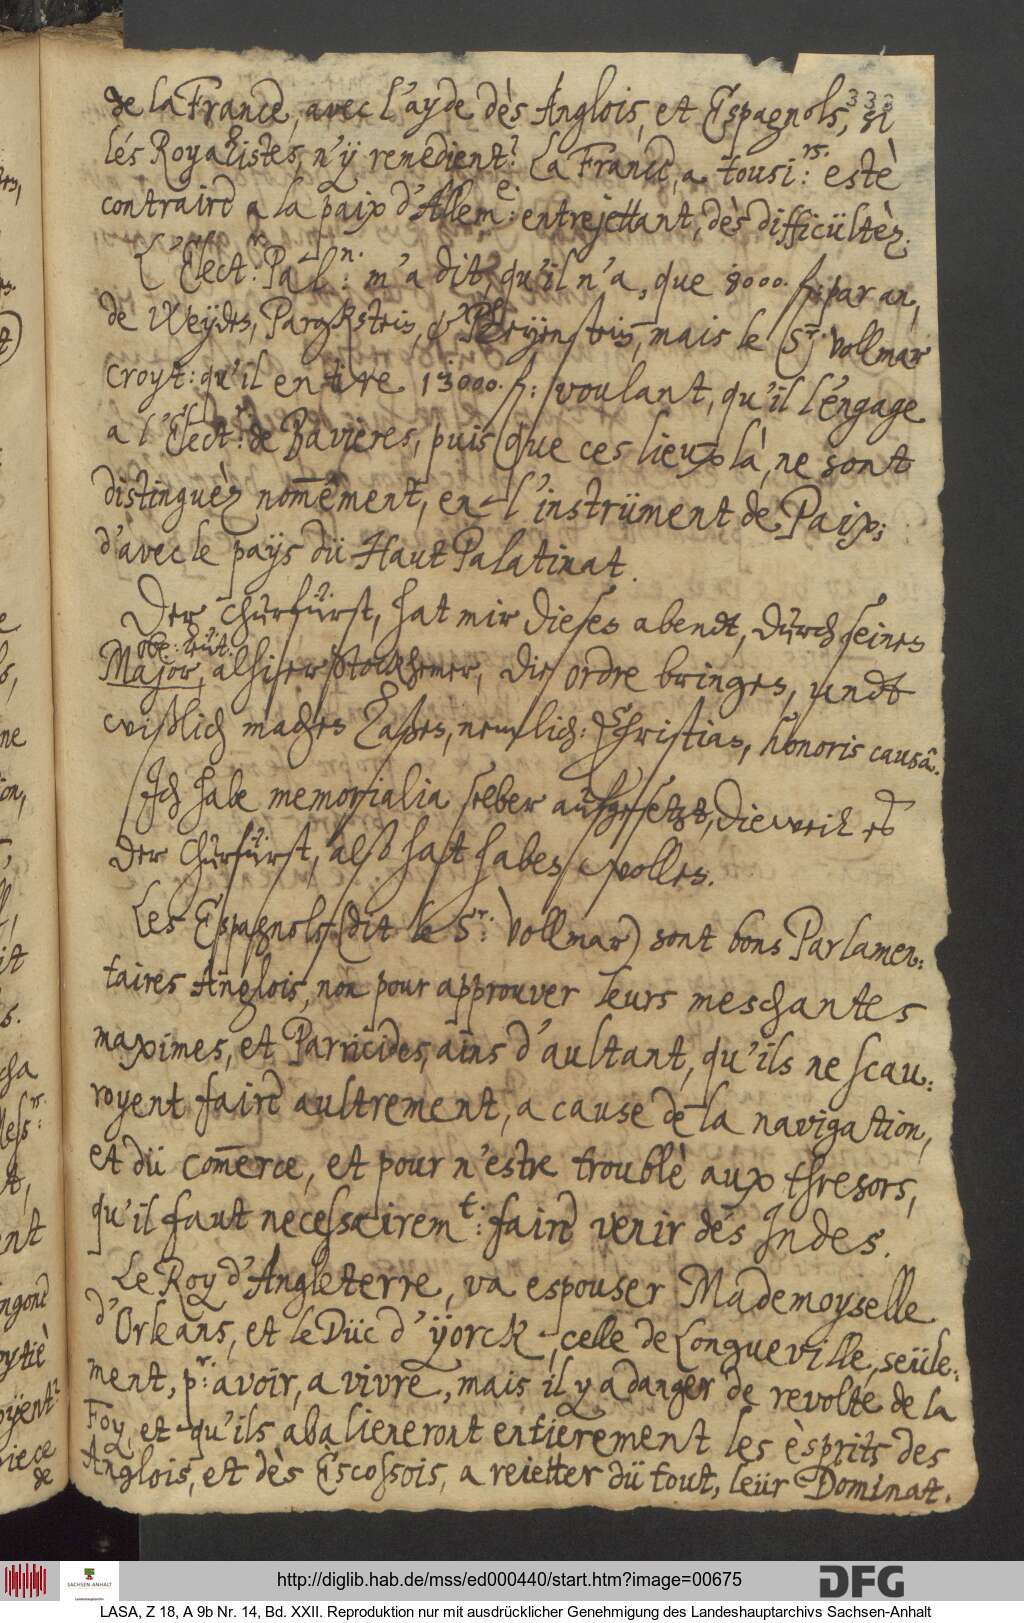 333
de la France, avec l'ayde dès Anglois, et Espagnols, si
lés Royalistes, n'ÿ remedient? La France, a tousj:rs. estè
contraire a la paix d'Allem:e: entrejettant, dès difficültèz.
L'Elect:r Pal:n. m'a dit, qu'il n'a, que 8000. f: par an,
de Weÿden, Parckstein, & Pleÿenstein, mais le Sr. Vollmar
croyt: qu'il en tire 13000. f: voulant, qu'il l'éngage
a l'Elect:r de Bavieres, puis que ces lieux là, ne sont
distinguèz nom̄ément, en l'instrüment de Paix;
d'avec le paÿs dü Haut Palatinat.
Der Churfürst, hat mir dieses abendt, durch seinen
Obr: leüt:
Major, alhier Stockhemer, die ordre bringen, undt
wißlich machen laßen, nemlich: Christian, honoris causâ.
Ich habe memorialia selber aufgesetzt, dieweil es
der Churfürst, also hat haben wollen.
Les Espagnols (dit le Sr: Vollmar) sont bons Parlamen:
taires Anglois, non pour approuver leurs meschantes
maximes, et Parricides, ains d'aultant, qu'ils ne scau:
royent faire aultrement, a cause de la navigation,
et dü com̄erce, et pour n'estre troublè aux thresors,
qu'il faut necessairem:t: faire venir dés Indes.
Le Roy d'Angleterre, va espouser Mademoyselle
d'Orleans, et le Düc d'ÿorck, celle de Longueville, seüle:
ment, p:r avoir, a vivre, mais il y a danger de revolte de la
Foy, et qu'ils abalieneront entierement les èsprits des
Anglois, et dès Èscossois, a reietter dü tout, leür Dominat.
de
http://diglib.hab.de/mss/ed000440/start.htm?image=00675
SACHSEN-ANHALT
DFG
LASA, Z 18, A 9b Nr. 14, Bd. XXII. Reproduktion nur mit ausdrücklicher Genehmigung des Landeshauptarchivs Sachsen-Anhalt